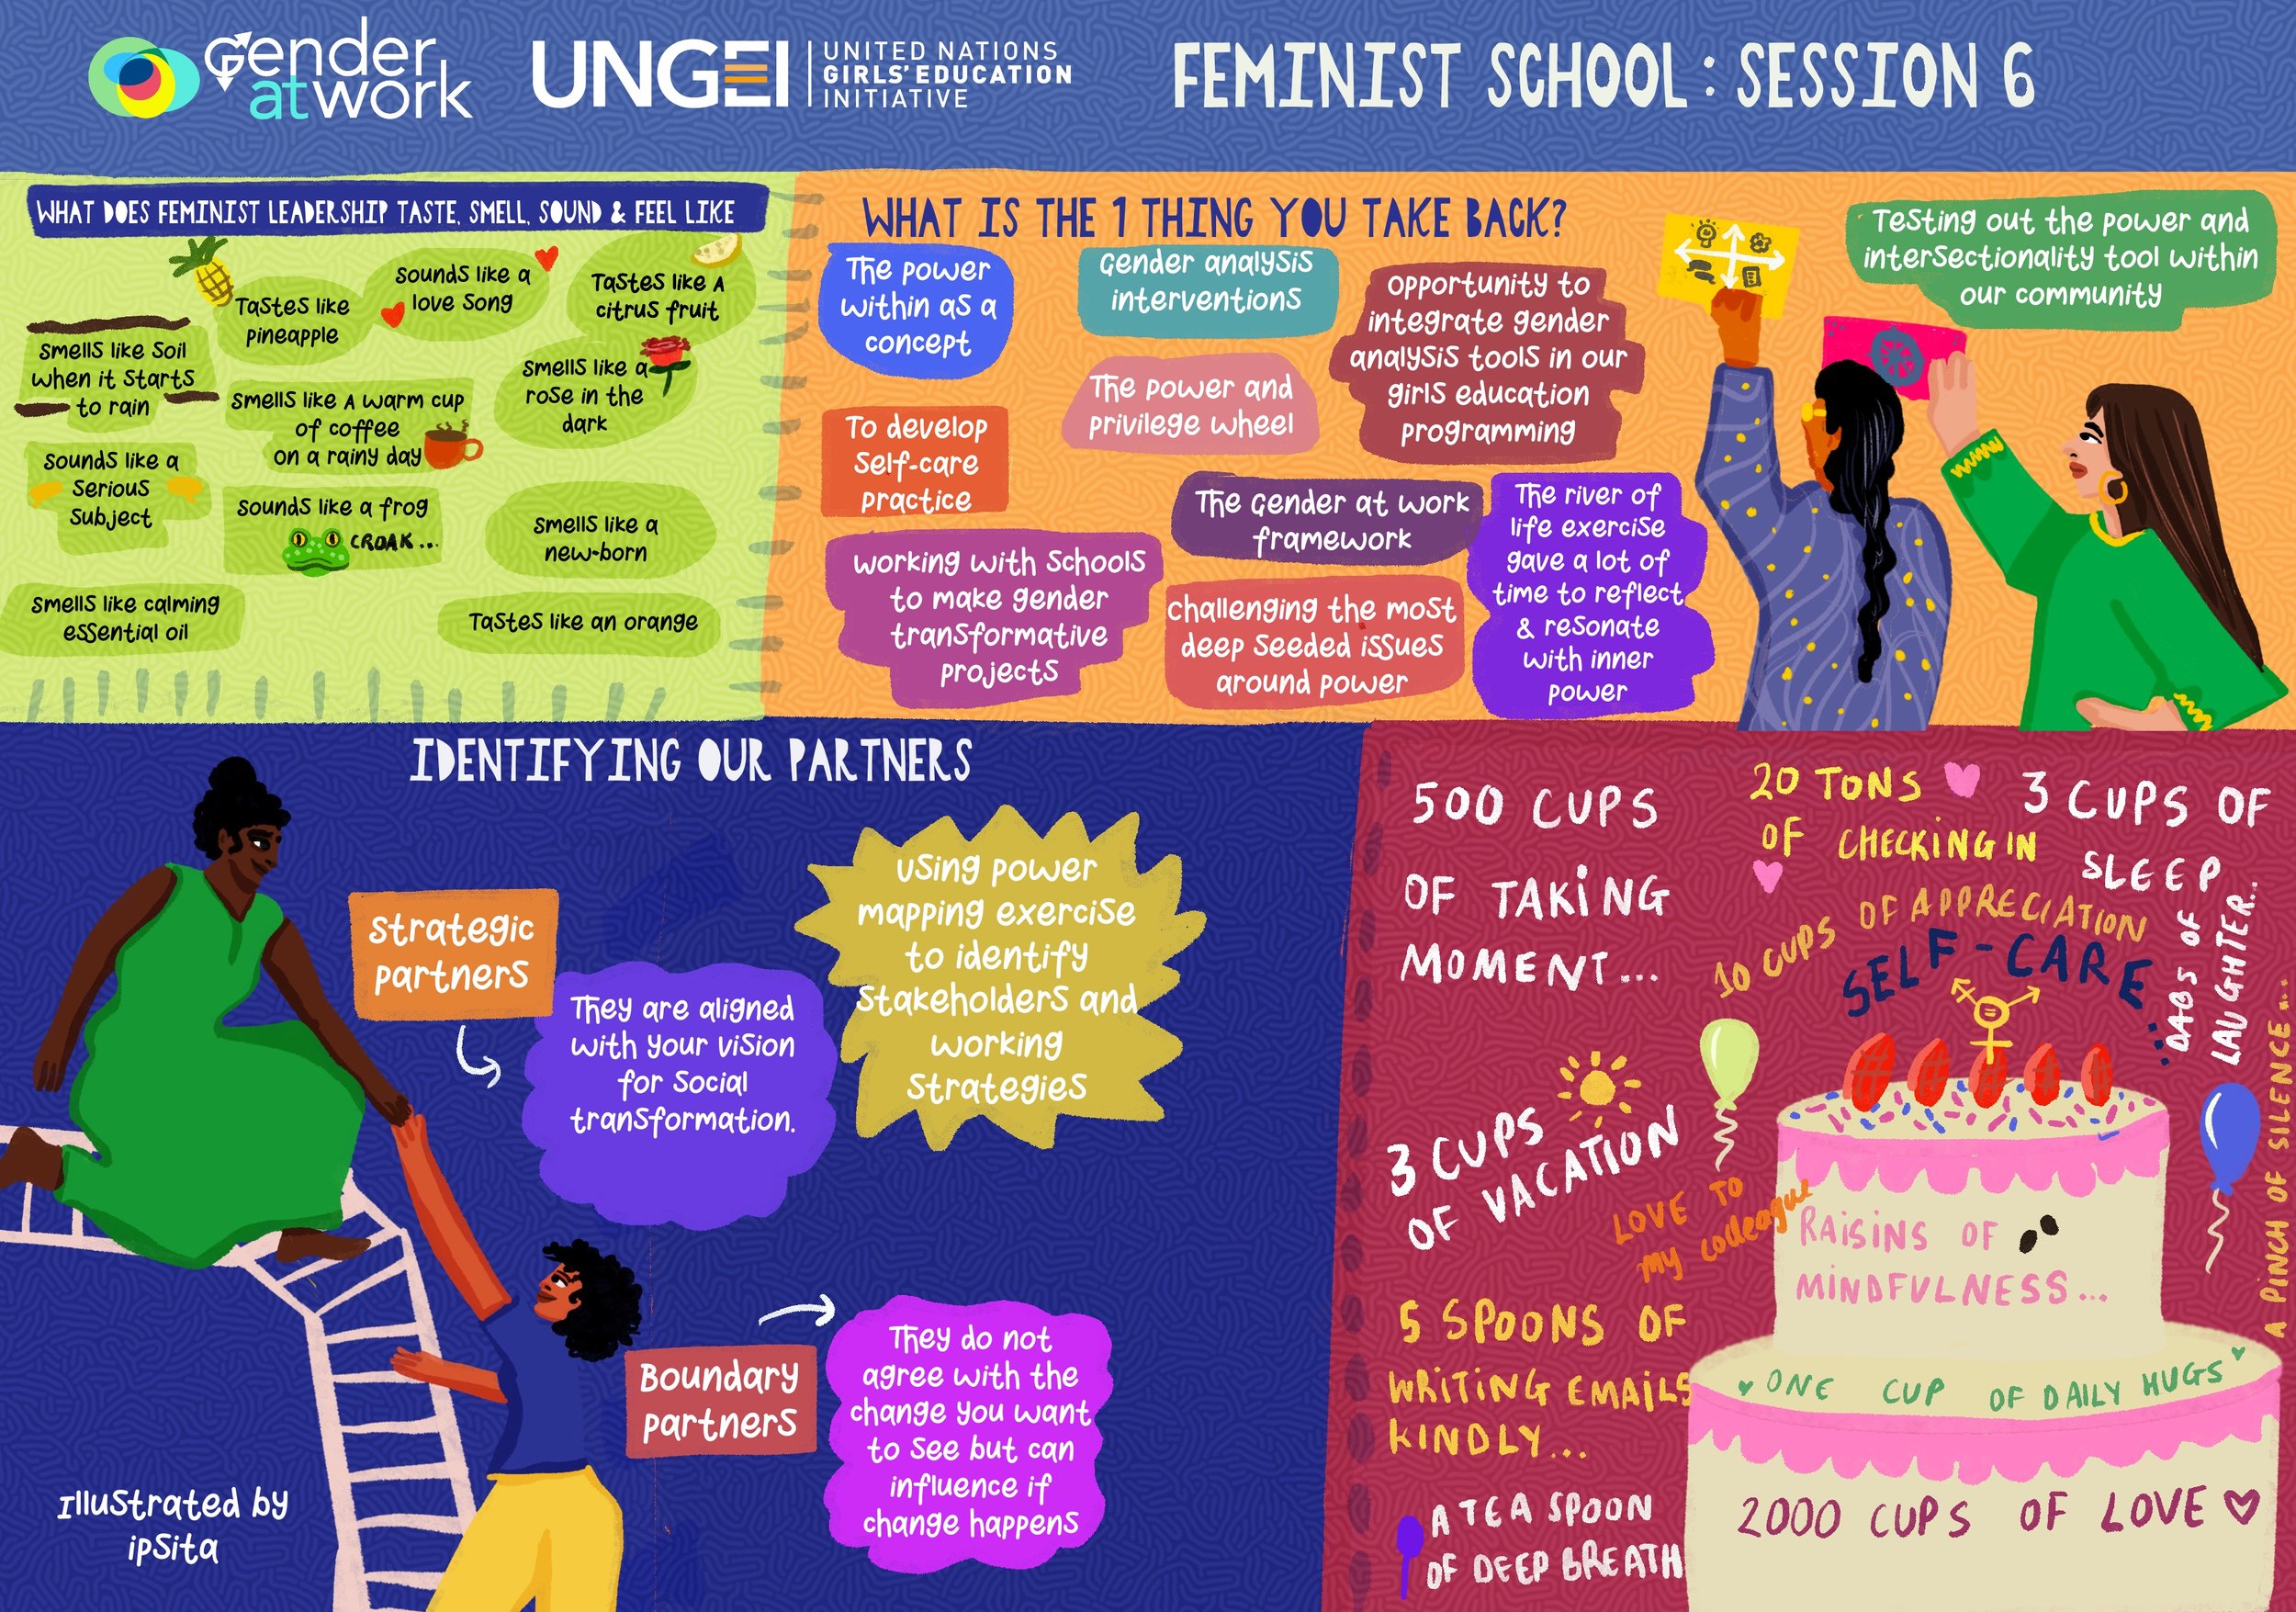 Gender
at work
UNGEI
UNITED NATIONS
GIRLS' EDUCATION
INITIATIVE
FEMINIST SCHOOL: SESSION 6
WHAT DOES FEMINIST LEADERSHIP TASTE, SMELL, SOUND & FEEL LIKE
Tastes like
pineapple
sounds like a
love song
Tastes like A
citrus fruit
smells like soil
when it starts
to rain
smells like A warm cup
of coffee
on a rainy day
smells like a
rose in the
dark
sounds like a
serious
subject
sounds like a frog
CROAK...
smells like a
new-born
smells like calming
essential oil
Tastes like an orange
WHAT IS THE 1 THING YOU TAKE BACK?
The power
within as a
concept
Gender analysis
interventions
opportunity to
integrate gender
analysis tools in our
girls education
programming
Testing out the power and
intersectionality tool within
our community
The power and
privilege wheel
To develop
self-care
practice
The Gender at work
framework
The river of
life exercise
gave a lot of
time to reflect
& resonate
with inner
power
working with schools
to make gender
transformative
projects
challenging the most
deep seeded issues
around power
IDENTIFYING OUR PARTNERS
strategic
partners
They are aligned
with your vision
for social
transformation.
using power
mapping exercise
to identify
stakeholders and
working
strategies
Boundary
partners
They do not
agree with the
change you want
to see but can
influence if
change happens
Illustrated by
ipsita
500 CUPS
OF TAKING
MOMENT...
20 TONS
OF CHECKING IN
3 CUPS OF
SLEEP
10 CUPS OF APPRECIATION
SELF-CARE...
DABS OF
LAUGHTER..
A PINCH OF SILENCE...
3 CUPS
OF VACATION
LOVE TO
my colleague
RAISINS OF
MINDFULNESS...
5 SPOONS OF
WRITING EMAILS
KINDLY...
ONE CUP OF DAILY HUGS
A TEA SPOON
OF DEEP BREATH
2000 CUPS OF LOVE